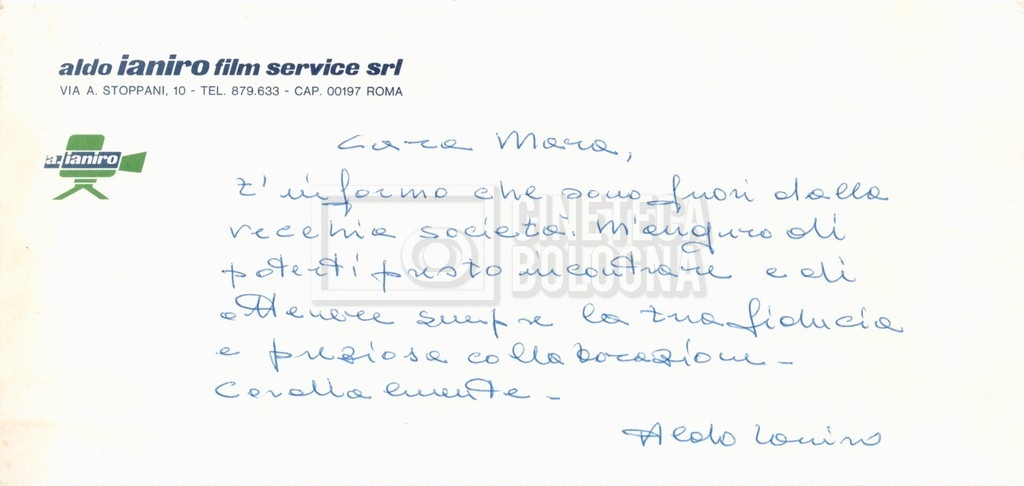 aldo ianiro film service srl
VIA A. STOPPANI, 10 - TEL. 879.633 - CAP. 00197 ROMA
a. ianiro
Cara Mara,
t'informo che sono fuori dalla
vecchia società. M'auguro di
poterti presto incontrare e di
ottenere sempre la tua fiducia
e preziosa collaborazione -
Cordialmente -
Aldo Ianiro
CINETECA
BOLOGNA